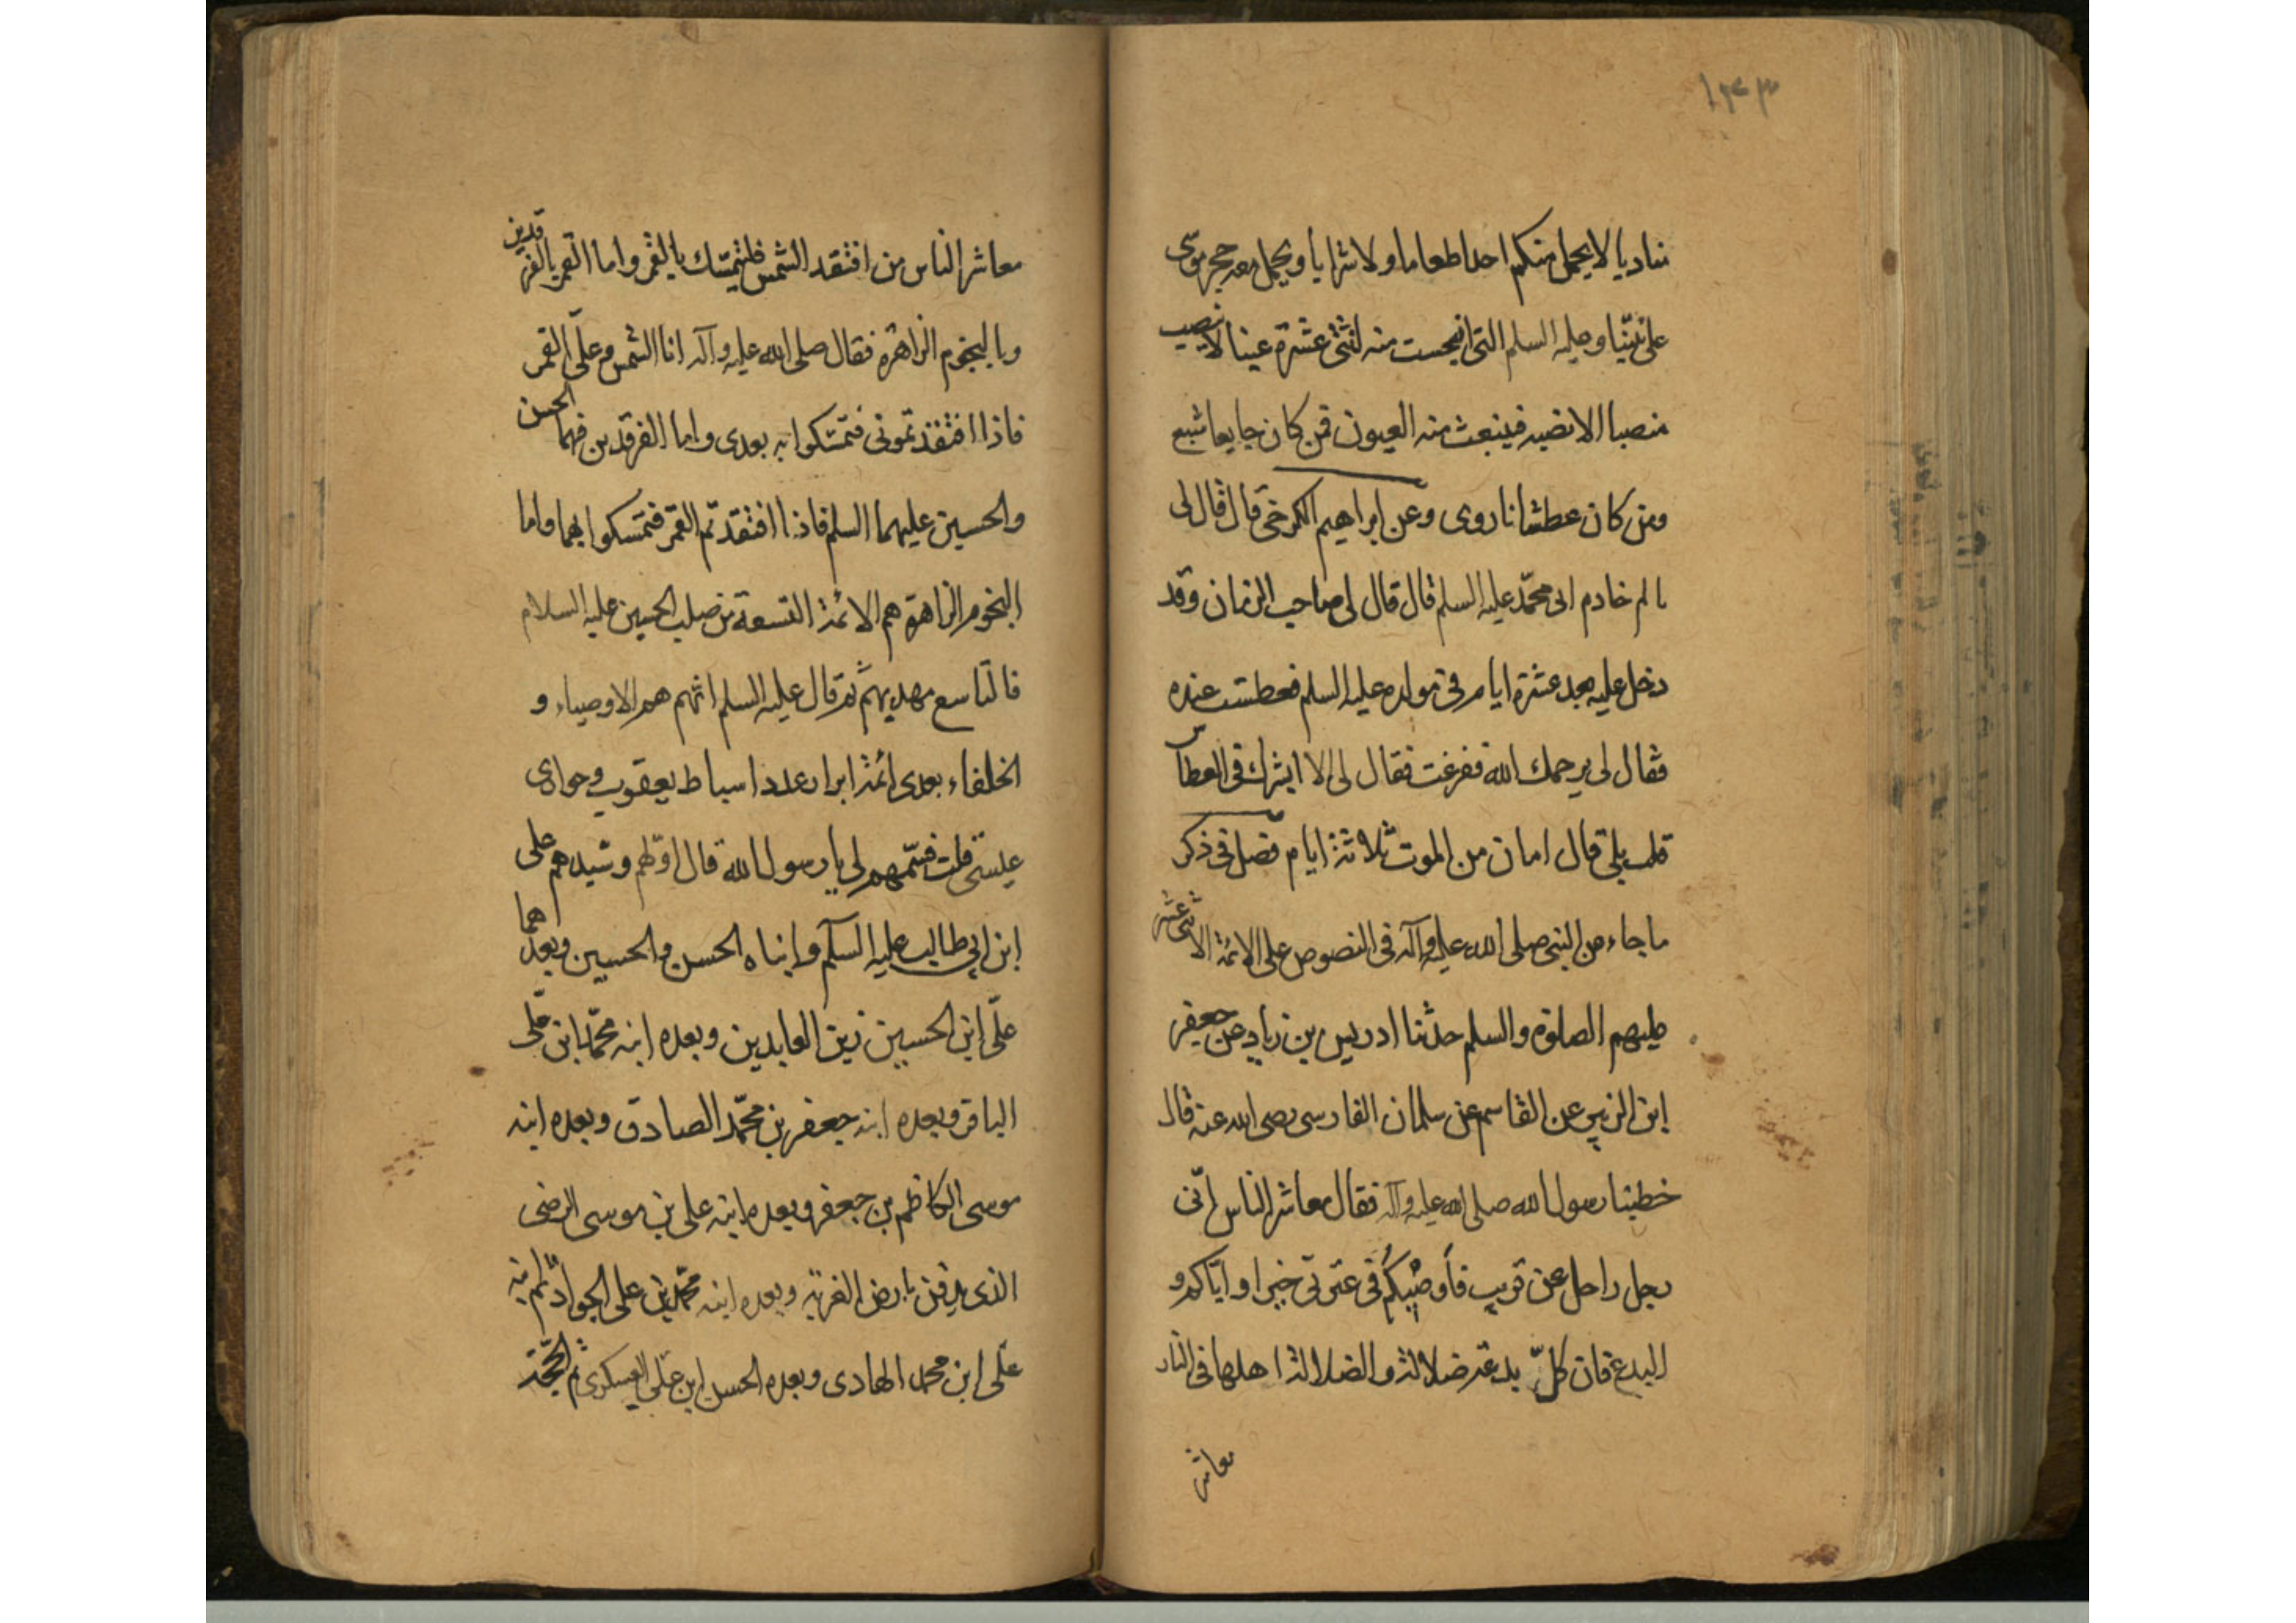 ١٤٣
مناديا لا يحمل منكم احدا طعاما ولا شرابا ويحمل معه حجر موسى
على نبينا وعليه السلم التى انبجست منه اثنتى عشرة عينا لا ينصب
منصبا الا نصبه فينبعث منه العيون فمن كان جايعا شبع
ومن كان عطشانا روى وعن ابراهيم الكرخى قال قال لى
خادم ابى محمّد عليه السلم قال قال لى صاحب الزمان وقد
دخل عليه بعد عشرة ايام فى مولده عليه السلم فعطست عنده
فقال لى يرحمك الله ففرغت فقال لى الا ابشرك فى العطاس
قلت بلى قال امان من الموت ثلاثة ايام فصل فى ذكر
ما جاء من النبى صلى الله عليه وآله فى النصوص على الائمة الاثنى عشر
عليهم الصلوة والسلم حدثنا ادريس بن زياد عن جعفر
ابن الزبير عن القاسم عن سلمان الفارسى رضى الله عنه قال
خطبنا رسول الله صلى الله عليه وآله فقال معاشر الناس انّى
رجل راحل عن قريب فأوصيكم فى عترتى خيرا واياكم و
البدع فان كلّ بدعة ضلالة والضلالة اهلها فى النار
معاشر
معاشر الناس من افتقد الشمس فليتمسّك بالقمر واما القمر بالفرقدين
وبالنجوم الزاهرة فقال صلى الله عليه وآله انا الشمس وعلىّ القمر
فاذا افتقدتمونى فتمسّكوا به بعدى واما الفرقدين فهما الحسن
والحسين عليهما السلم فاذا افتقدتم القمر فتمسكوا بهما واما
النجوم الزاهرة هم الائمة التسعة من صلب الحسين عليه السلام
فالتاسع مهديهم ثم قال عليه السلم انهم هم الاوصياء و
الخلفاء بعدى ائمة ابرار عدد اسباط يعقوب وحوارى
عيسى قلت فسمّهم لى يا رسول الله قال اولهم وسيدهم على
ابن ابي طالب عليه السلم وابناه الحسن والحسين وبعدهما
علىّ ابن الحسين زين العابدين وبعده ابنه محمّد ابن علّى
الباقر وبعده ابنه جعفر بن محمّد الصادق وبعده ابنه
موسى الكاظم بن جعفر وبعده ابنه على بن موسى الرضى
الذى يدفن بارض الغربة وبعده ابنه محمّد بن على الجواد ثم ابنه
علّى ابن محمد الهادى وبعده الحسن ابن علّى العسكرى ثم الحجّة